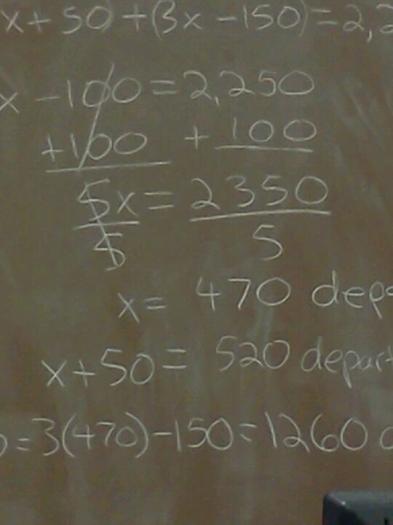 x+50)+(3x-150)=2,2
x-100=2,250
+100 +100
5x=2350
5 5
x=470 depa
x+50=520 depart
=3(470)-150=1260